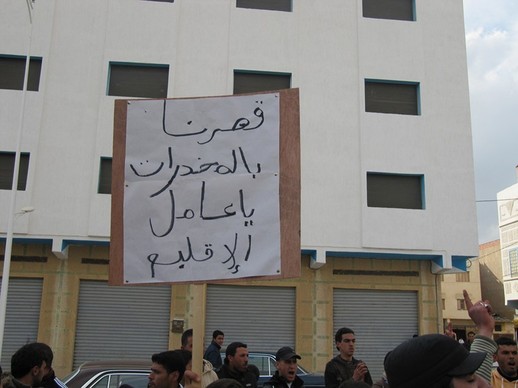 قهرنا
بالمخدرات
يا عامل
الإقليم